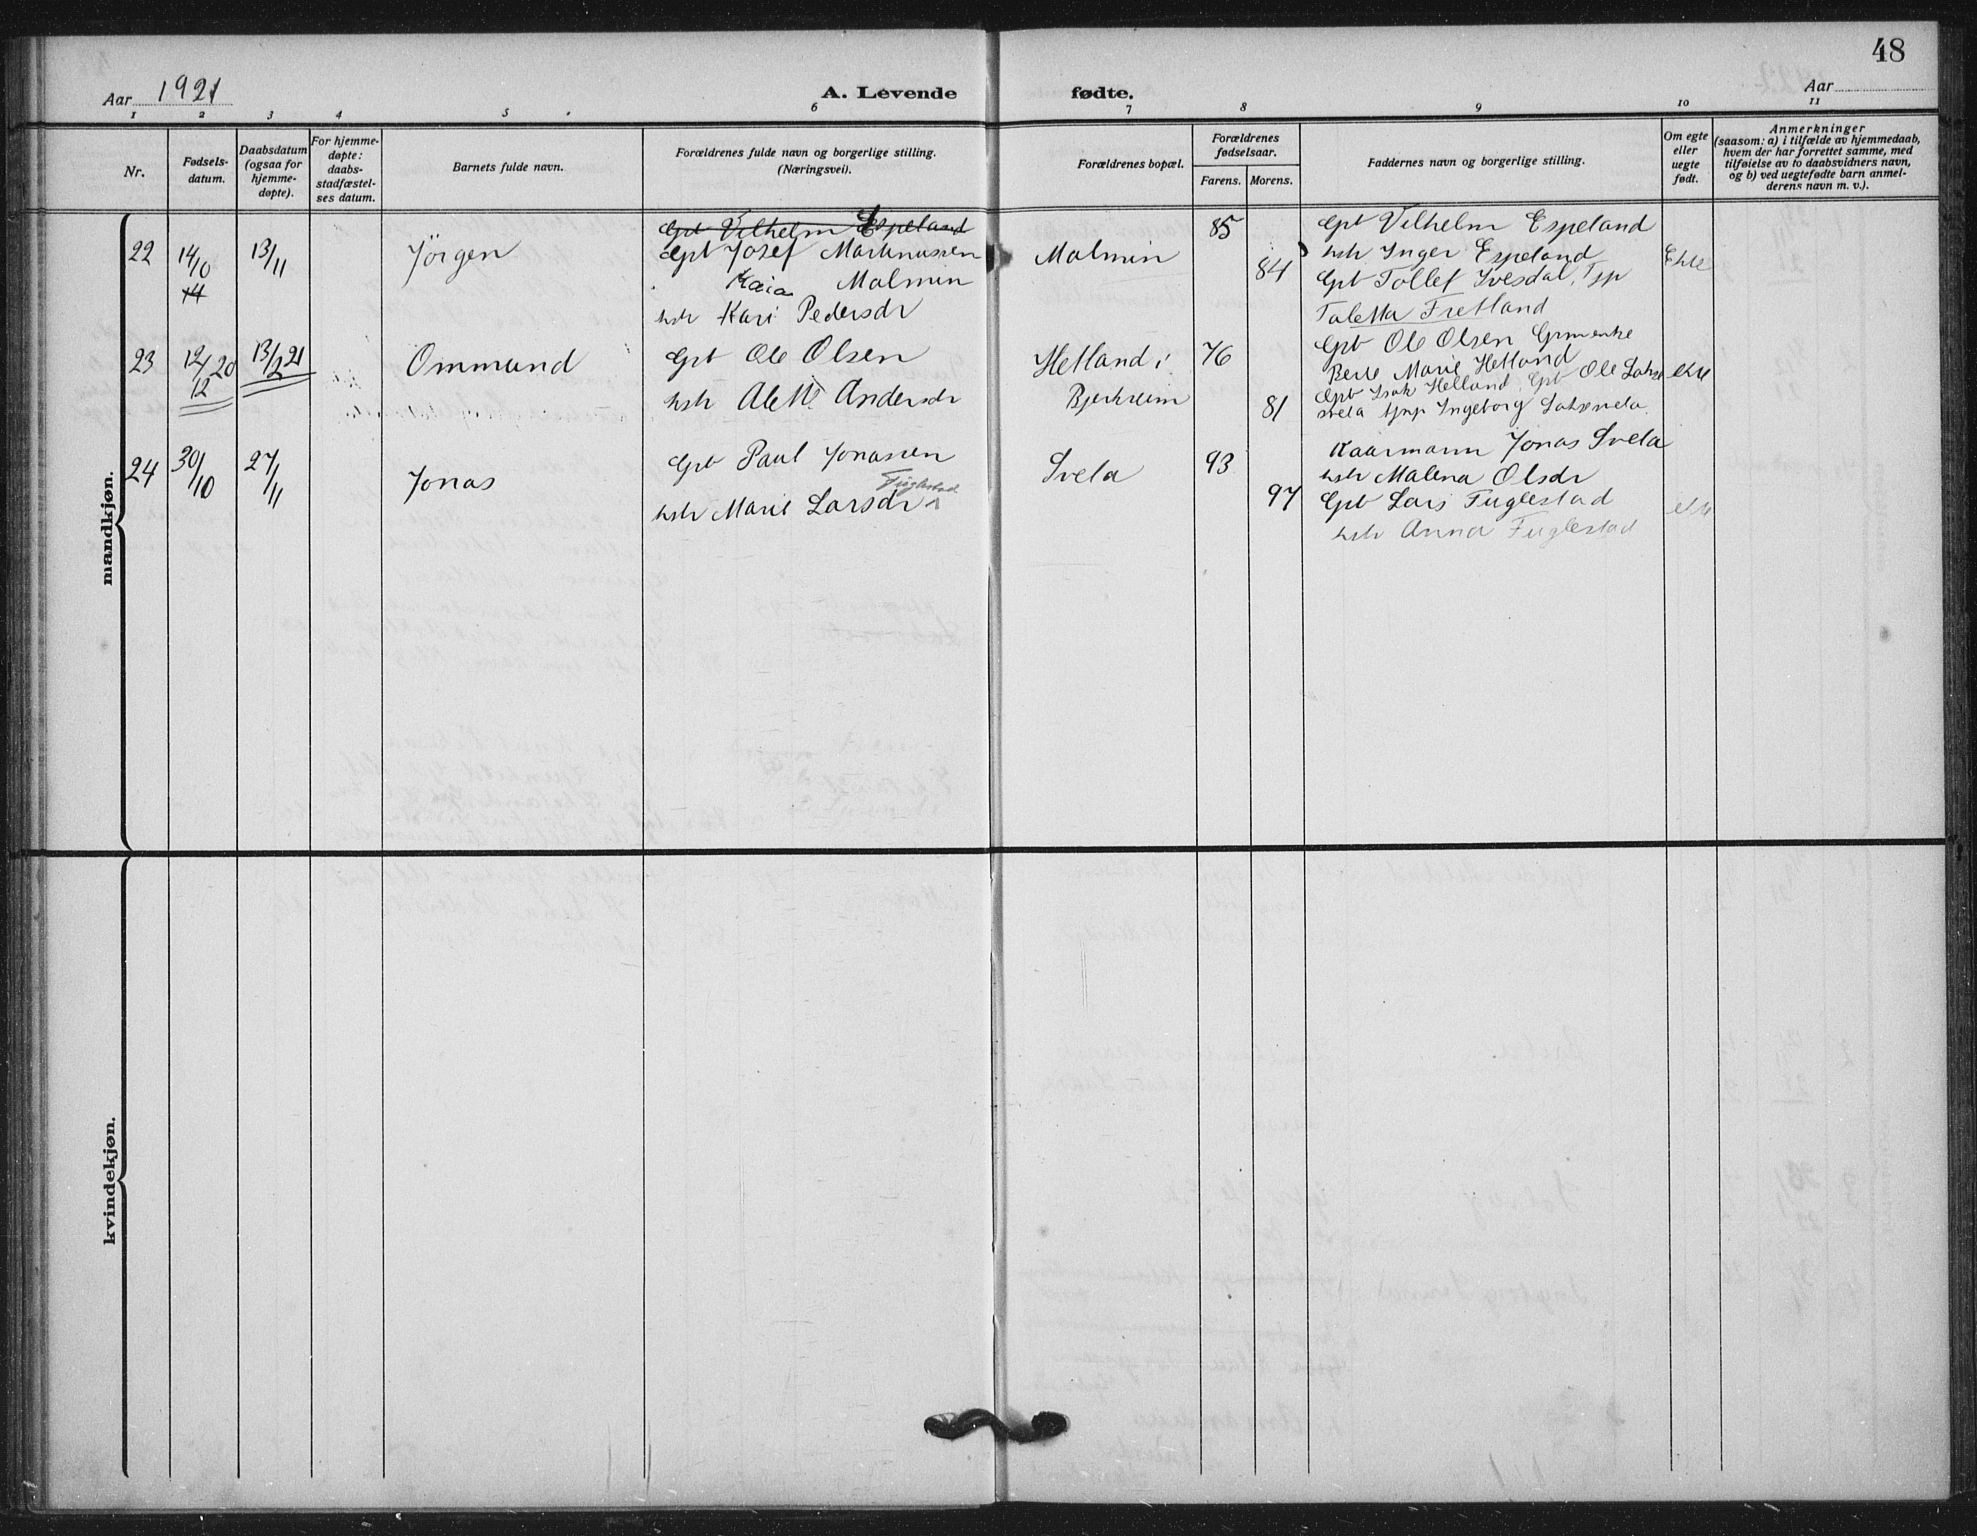 48
Aar 1921
A. Levende fødte.
Aar
1 2 3 4 5 6 7 8 9 10 11
Nr.
Fødsels-
datum.
Daabsdatum
(ogsaa for
hjemme-
døpte).
For hjemme-
døpte:
daabs-
stadfæstel-
ses datum.
Barnets fulde navn.
Forældrenes fulde navn og borgerlige stilling.
(Næringsvei).
Forældrenes bopæl.
Forældrenes
fødselsaar.
Farens. Morens.
Faddernes navn og borgerlige stilling.
Om egte
eller
uegte
født.
Anmerkninger
(saasom: a) i tilfælde av hjemmedaab,
hvem der har forrettet samme, med
tilføielse av to daabsvidners navn,
og b) ved uegtefødte barn anmel-
derens navn m. v.).
mandkjøn.
22 14/10 13/11 Jörgen
Gpt Vilhelm Espeland
Gpt Josef Martinussen
Kaia Malmin
hstr Kari Pedersdr
Malmin 85 84
Gpt Vilhelm Espeland
hstr Inger Espeland
Gpt Tollef Ivesdal,
Taletta Fretland
Ekte
23 12/12 20 13/2 21 Ommund
Gpt Ole Olsen
hstr Andersdr
Hetland i
Bjerkreim
76 81
Gpt Ole Olsen
Berte Marie Hetland
Gpt Isak Helland, Gpt Ole
Ingeborg
ekte
24 30/10 27/11 Jonas
Gpt Paul Jonassen
Fuglestad
hstr Marie Larsdr
Svela 93 97
Kaarmann Jonas Svela
hstr Malena Olsdr
Gpt Lars Fuglestad
hstr Anna Fuglestad
ekte
kvindekjøn.